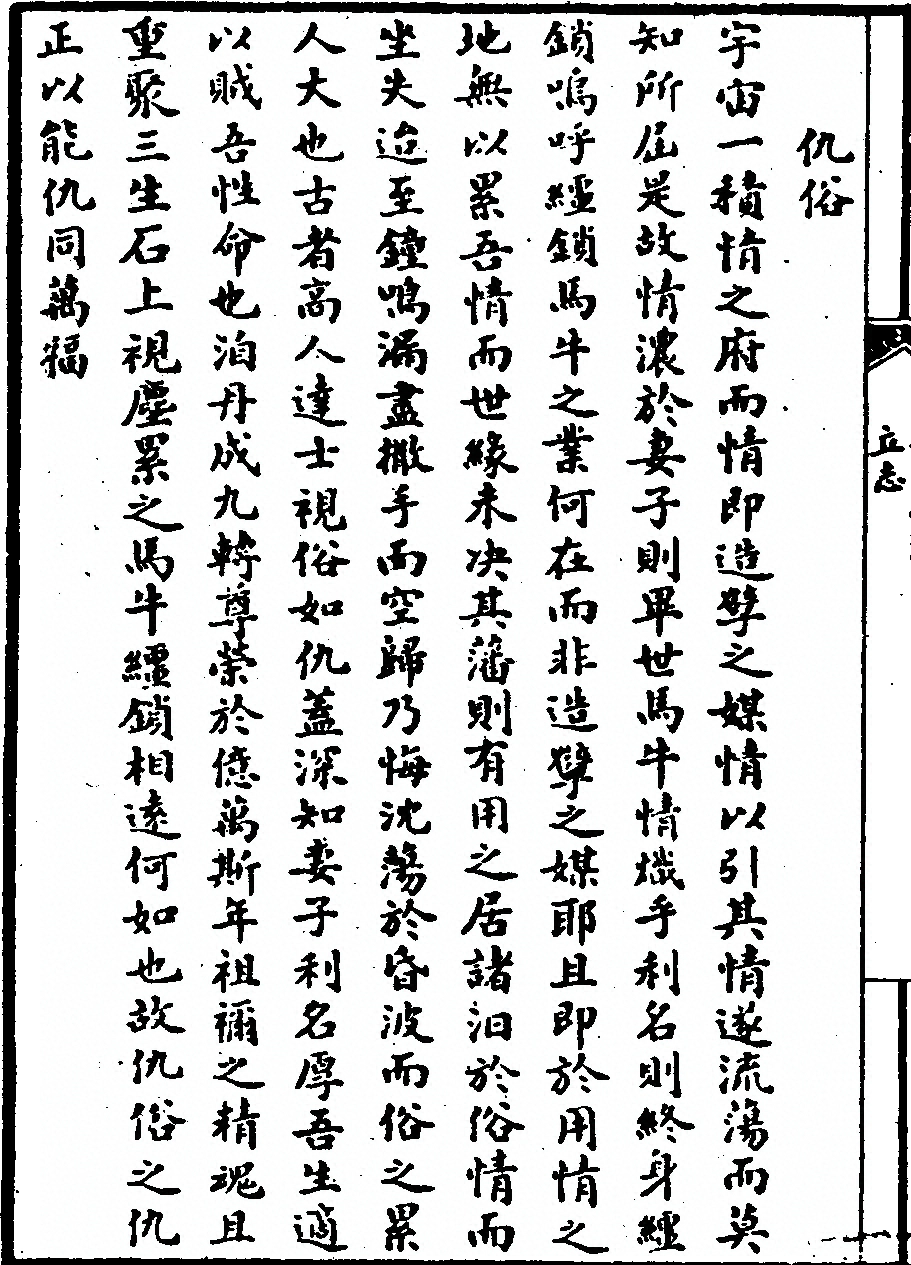 仇俗
宇宙一積情之府而情即造孽之媒情以引其情遂流蕩而莫
知所屆是故情濃於妻子則畢世馬牛情熾乎利名則終身繮
鎖嗚呼繮鎖馬牛之業何在而非造孽之媒耶且即於用情之
地無以累吾情而世緣未决其藩則有用之居諸汩於俗情而
坐失迨至鐘鳴漏盡撒手而空歸乃悔沈蕩於昏波而俗之累
人大也古者高人達士視俗如仇蓋深知妻子利名厚吾生適
以賊吾性命也洎丹成九轉尊榮於億萬斯年祖禰之精魂且
重聚三生石上視塵累之馬牛繮鎖相逺何如也故仇俗之仇
正以能仇同萬福
立志